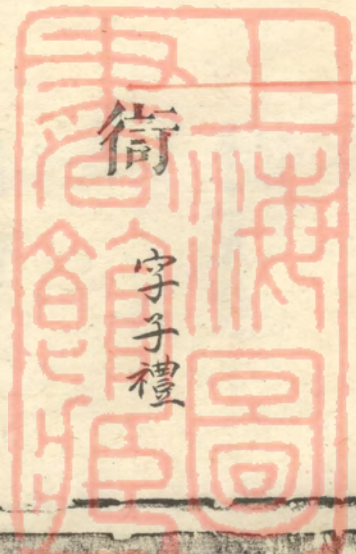 字子禮
上海圖
書館